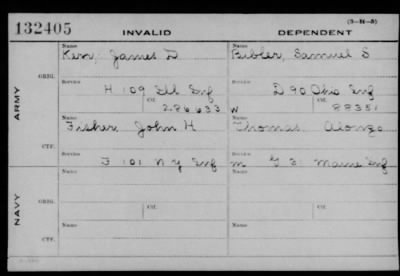 (3-M-8)
132405 INVALID DEPENDENT
Name Name
Kerr, James D Bibler, Samuel S
ARMY
ORIG. Service Service
H 109 Ill Inf D 90 Ohio Inf
Ctf. Ctf.
286,633 W 88351
Name
Fisher, John H Thomas, Alonzo
CTF. Service Service
F 101 N Y Inf m G 31 Maine Inf
NAVY
Name Name
ORIG. Service Ctf. Service Ctf.
Name Name
CTF. Service Service